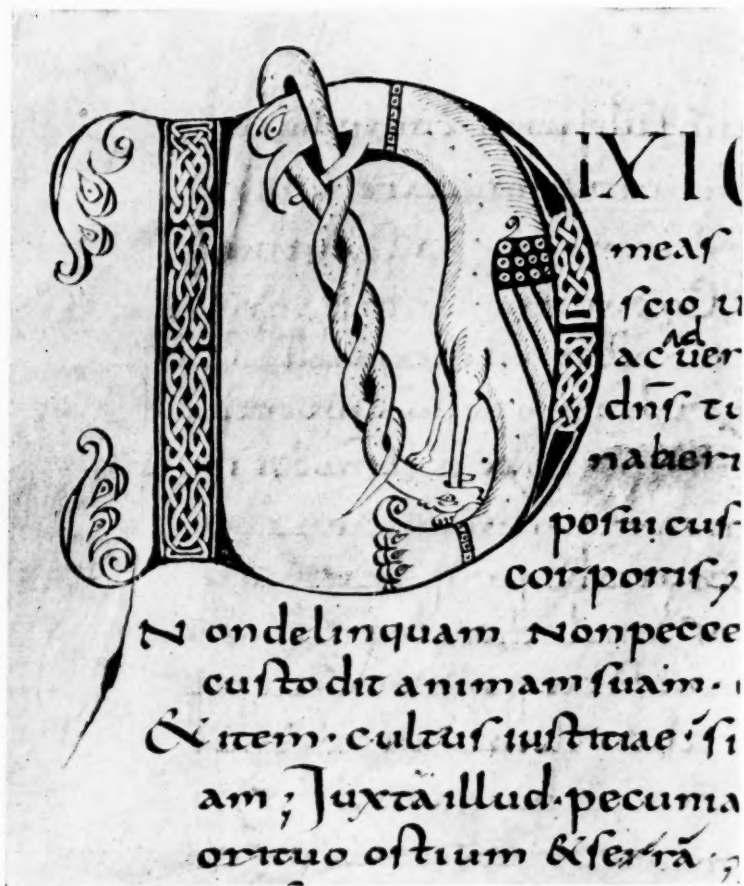 DIXI C
meas
scio u
ac ad uer
dn̄s tu
naberi
posui cus
corporis;
Non delinquam Non pecce
custodit animam suam ·
& item · cultus iustitiae · si
am ; Juxta illud · pecunia
ori tuo ostium & serrā ;